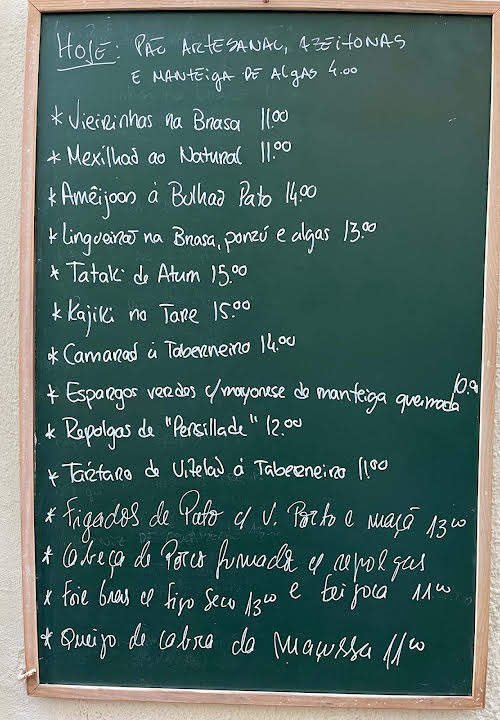 HOJE: PÃO ARTESANAL, AZEITONAS
E MANTEIGA DE ALGAS 4.00
* Vieirinhas na Brasa 11.00
* Mexilhão ao Natural 11.00
* Amêijoas à Bulhão Pato 14.00
* Lingueirão na Brasa, ponzú e algas 13.00
* Tataki de Atum 15.00
* Kajiki no Tare 15.00
* Camarão à Taberneiro 14.00
* Espargos verdes c/mayonese de manteiga queimada 10.00
* Repolgas de "Persillade" 12.00
* Tártaro de Vitelão à Taberneiro 11.00
* Figados de Pato c/ V. Porto e maçã 13.00
* Cabeça de Porco fumada c/ repolgas
e feijoca 11.00
* Foie bras c/ figo seco 13.00
* Queijo de cabra da Maçussa 11.00